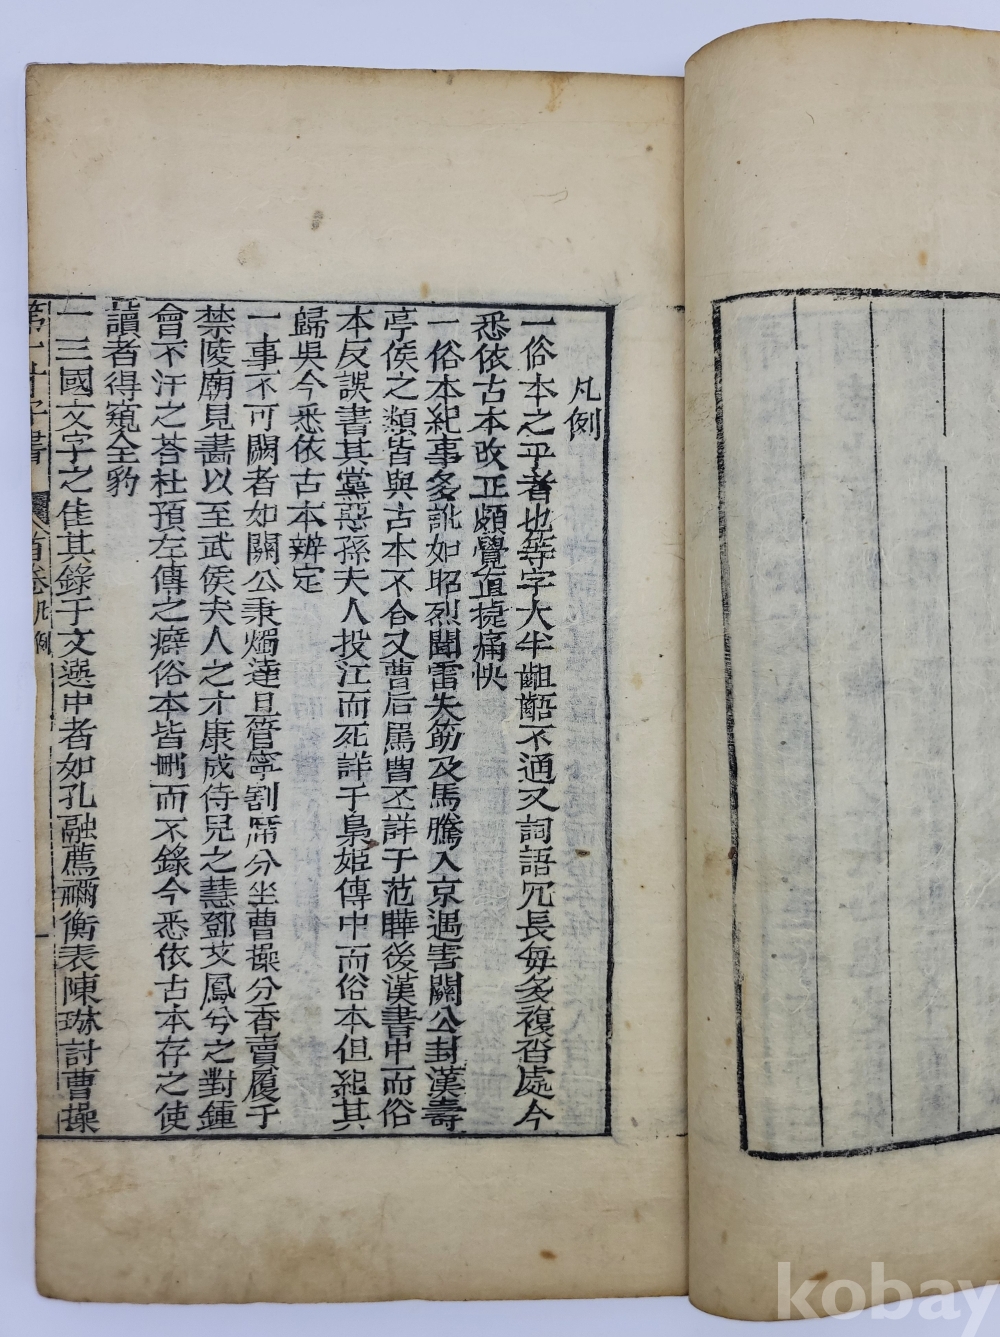 凡例
一俗本之乎者也等字大半齟齬不通又詞語冗長每多複沓處今
悉依古本改正頗覺直捷痛快
一俗本紀事多訛如昭烈聞雷失筯及馬騰入京遇害關公封漢壽
亭侯之類皆與古本不合又曹后罵曹丕詳于范曄後漢書中而俗
本反誤書其黨惡孫夫人投江而死詳于梟姬傳中而俗本但紀其
歸吳今悉依古本辨定
一事不可闕者如關公秉燭達旦管寧割席分坐曹操分香賣履于
禁陵廟見畵以至武侯夫人之才康成侍兒之慧鄧艾鳳兮之對鍾
會不汗之荅杜預左傳之癖俗本皆刪而不錄今悉依古本存之使
讀者得窺全豹
一三國文字之佳其錄于文選中者如孔融薦禰衡表陳琳討曹操
第一才子書 首卷凡例 一
kobay